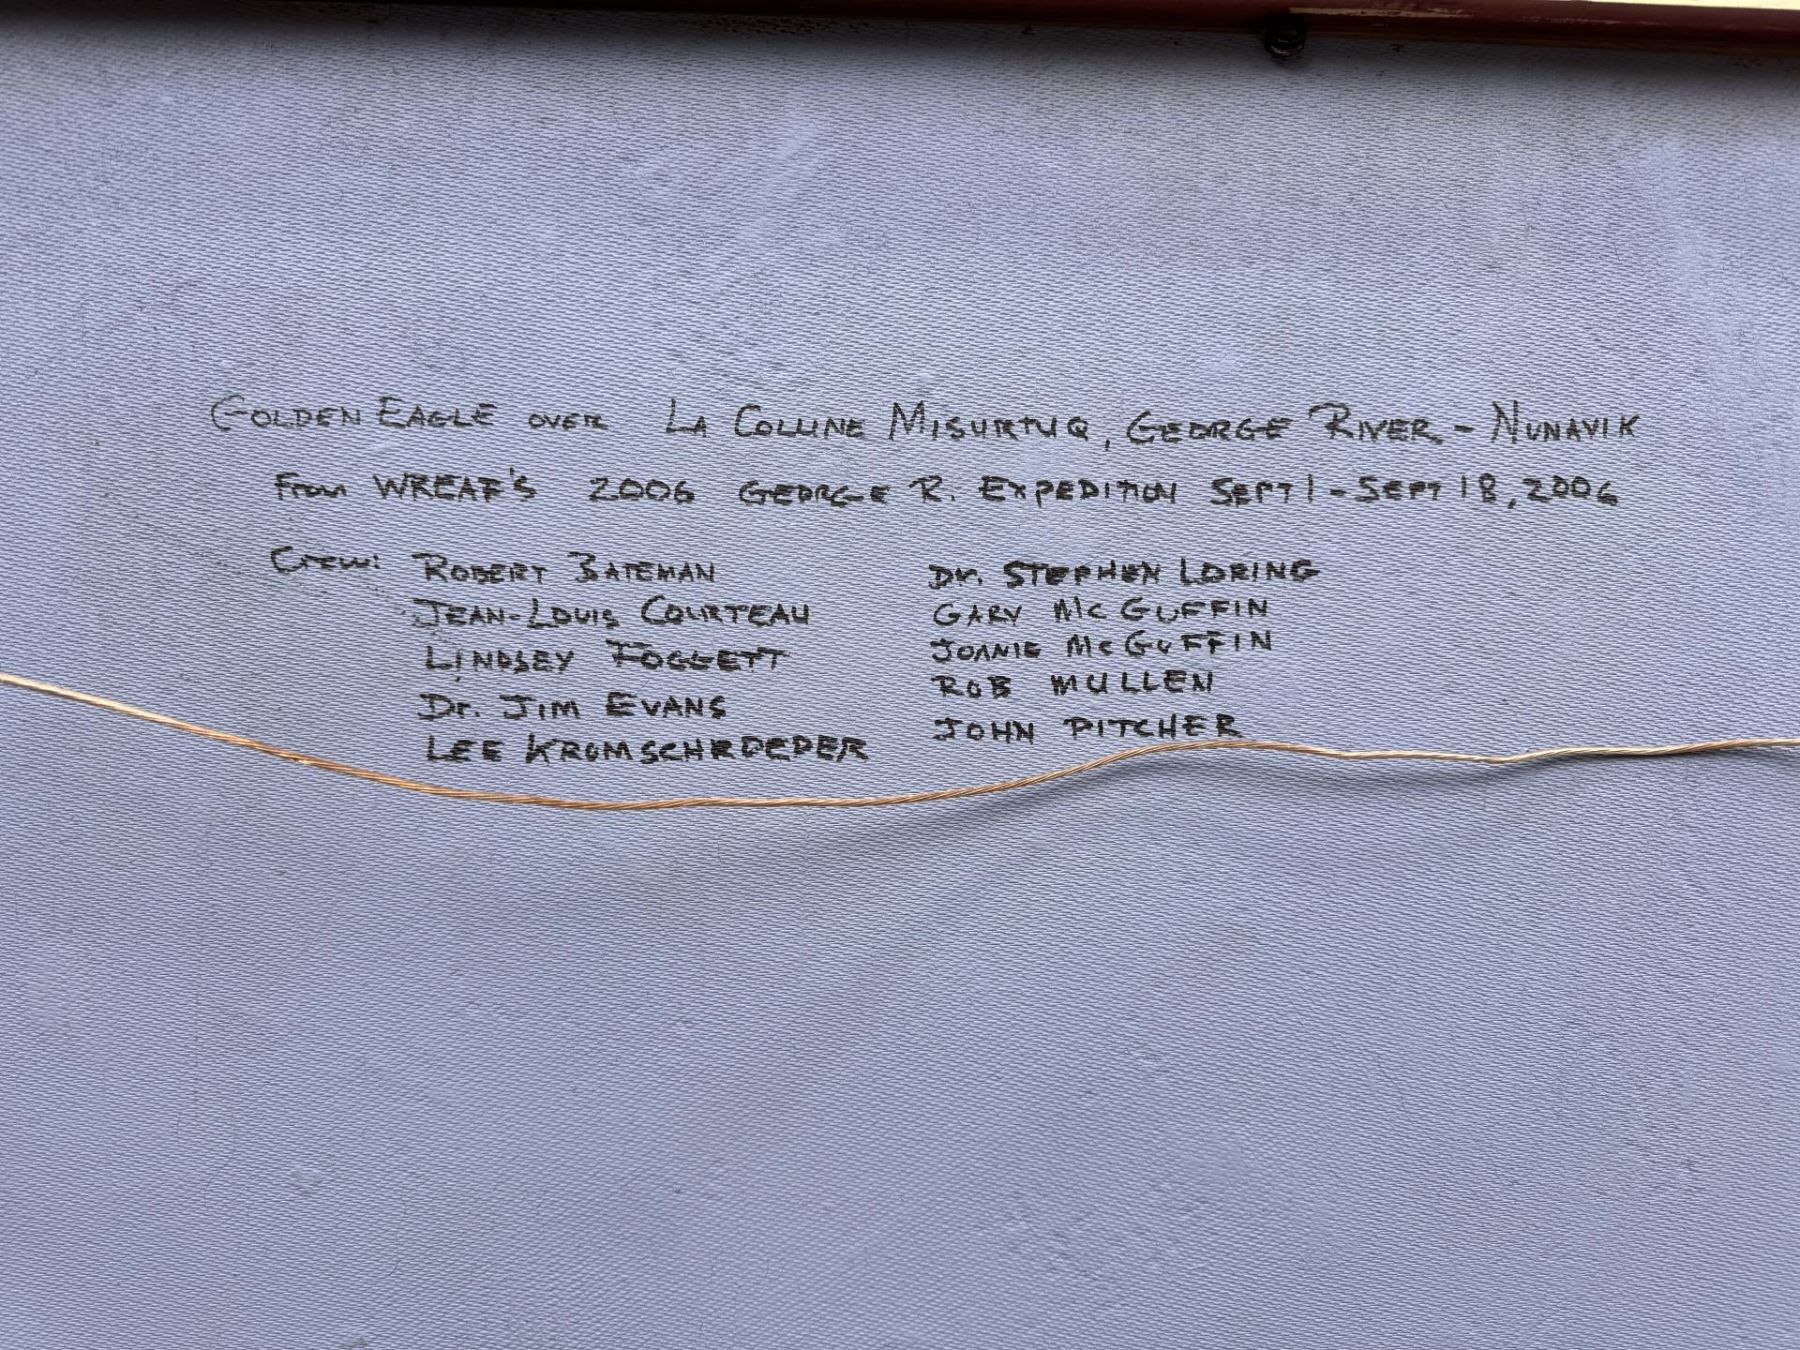 GOLDEN EAGLE OVER LA COLLINE MISURTUQ, GEORGE RIVER - NUNAVIK
From WREAF'S 2006 GEORGE R. EXPEDITION SEPT 1 - SEPT 18, 2006
Crew: ROBERT BATEMAN
JEAN-LOUIS COURTEAU
LINDSEY FOGGETT
Dr. JIM EVANS
LEE KROMSCHROEDER
Dr. STEPHEN LORING
GARY McGUFFIN
JOANIE McGUFFIN
ROB MULLEN
JOHN PITCHER